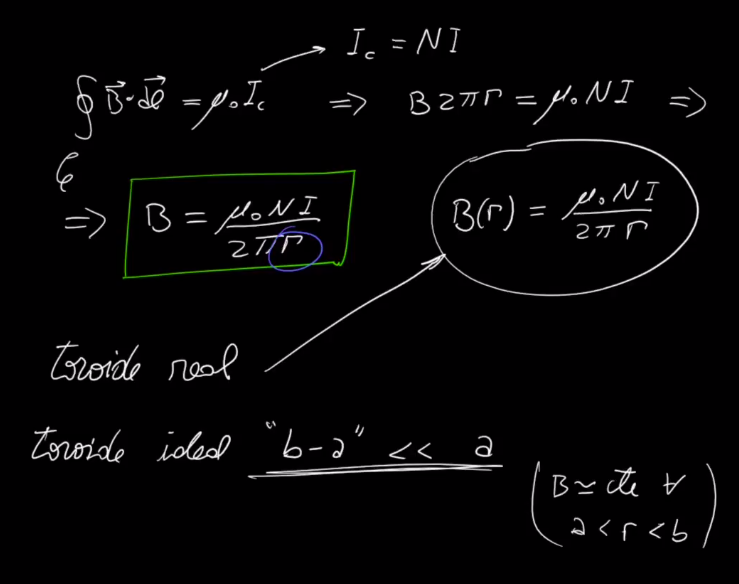 I_c = NI
∮ B⃗·dl⃗ = μ₀I_c ⇒ B 2πr = μ₀ NI ⇒
C
⇒ B = μ₀NI / 2πr B(r) = μ₀NI / 2πr
toroide real
toroide ideal "b-a" << a
(B ≃ cte ∀
a < r < b)